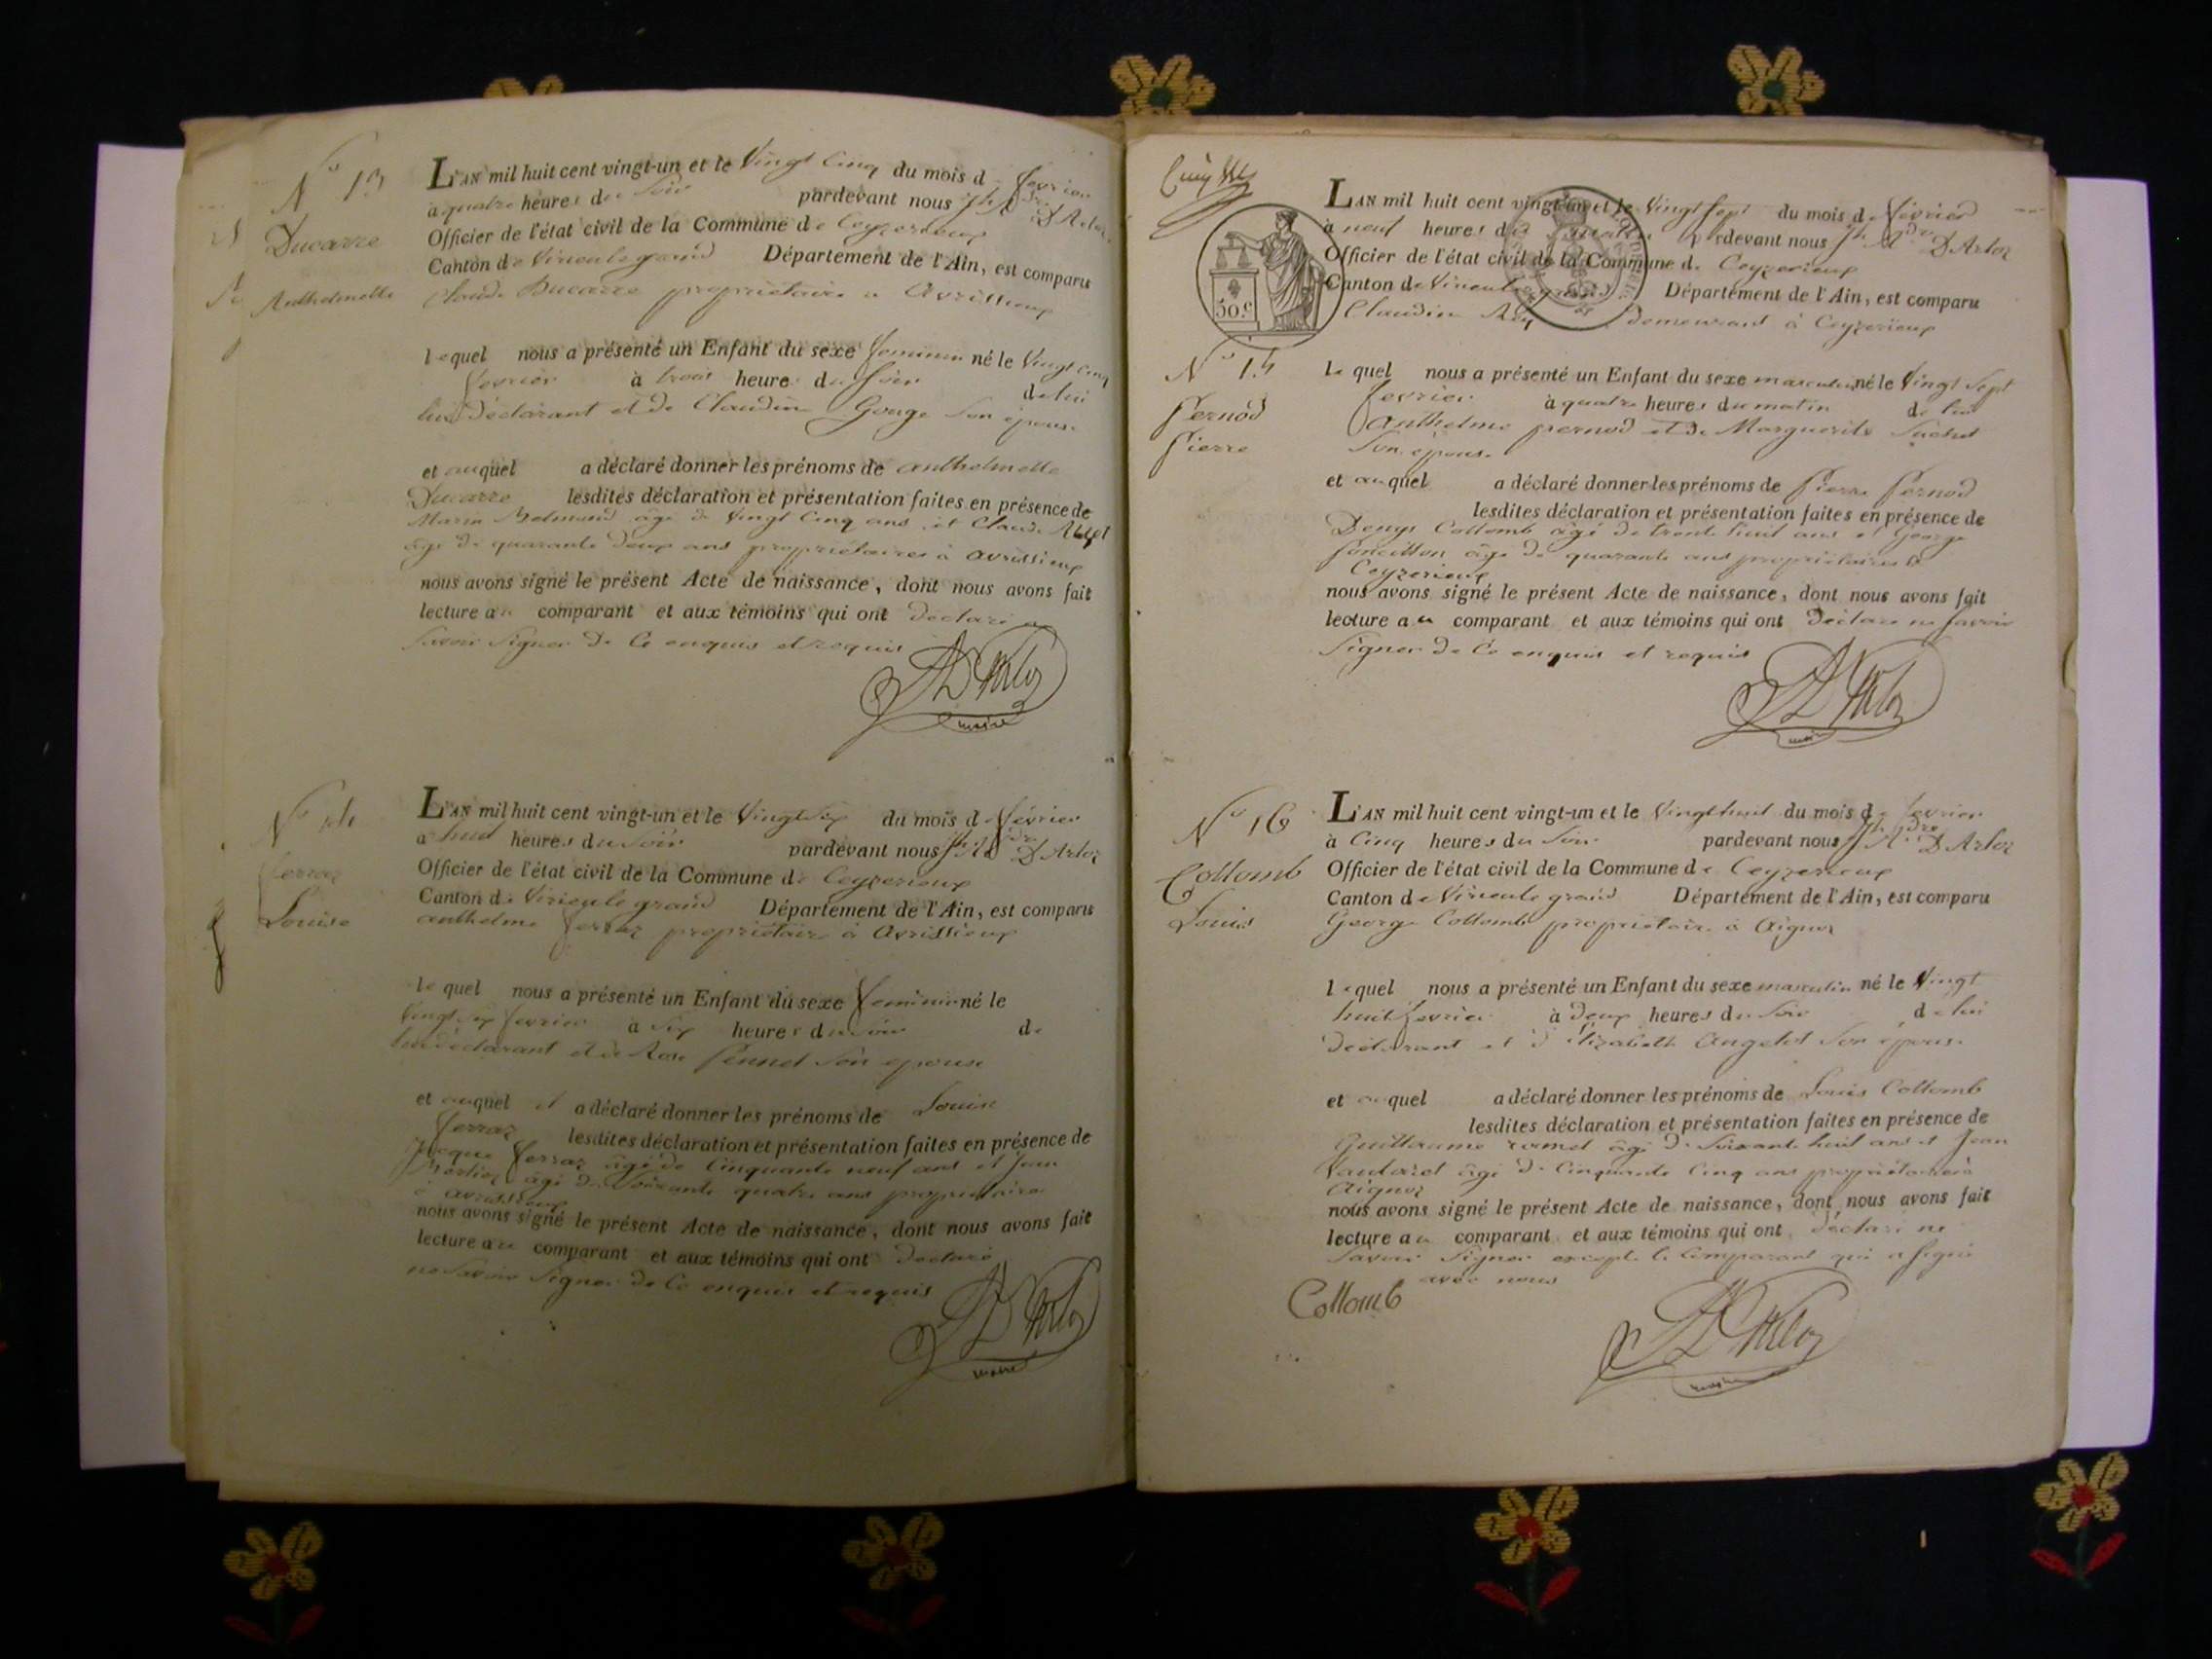 N° 13
Ducarre
Anthelmette
L'AN mil huit cent vingt-un et le Vingt Cinq du mois de fevrier
à quatre heures du Soir pardevant nous Jh Adre D'Arloz
Officier de l'état civil de la Commune de Ceyzerieux
Canton de Virieulegrand Département de l'Ain, est comparu
Claude Ducarre propriétaire a Avrissieux
lequel nous a présenté un Enfant du sexe feminin né le Vingt Cinq
fevrier à trois heures du Soir de lui
déclarant et de Claudine Gouge Son épouse
et auquel a déclaré donner les prénoms de anthelmette
Ducarre lesdites déclaration et présentation faites en présence de
Marin âgé de Vingt Cinq ans et Claude
âgé de quarante deux ans propriétaires à avrissieux
nous avons signé le présent Acte de naissance, dont nous avons fait
lecture au comparant et aux témoins qui ont declaré ne
Savoir Signer de Ce enquis et requis
D'Arloz
maire
N° 14
ferraz
Louise
L'AN mil huit cent vingt-un et le Vingt Six du mois de février
à huit heures du Soir pardevant nous Jh Adre D'Arloz
Officier de l'état civil de la Commune de Ceyzerieux
Canton de Virieulegrand Département de l'Ain, est comparu
anthelme ferraz propriétaire à Avrissieux
lequel nous a présenté un Enfant du sexe feminin né le
Vingt Six fevrier à Six heures du Soir de
lui déclarant et de Rose Pennet Son epouse
et auquel il a déclaré donner les prénoms de Louise
ferraz lesdites déclaration et présentation faites en présence de
Jacque ferraz âgé de Cinquante neuf ans et Jean
âgé de Soixante quatre ans propriétaires
à avrissieux
nous avons signé le présent Acte de naissance, dont nous avons fait
lecture au comparant et aux témoins qui ont declaré
ne Savoir Signer de Ce enquis et requis
D'Arloz
maire
50.c
N° 15
Pernod
Pierre
L'AN mil huit cent vingt-un et le Vingt Sept du mois de février
à neuf heures du matin pardevant nous Jh Adre D'Arloz
Officier de l'état civil de la Commune de Ceyzerieux
Canton de Virieulegrand Département de l'Ain, est comparu
Claudine Rey demeurant à Ceyzerieux
lequel nous a présenté un Enfant du sexe masculin né le Vingt Sept
fevrier à quatre heures du matin de
anthelme pernod et de Marguerite Suchet
Son épouse
et auquel a déclaré donner les prénoms de Pierre Pernod
lesdites déclaration et présentation faites en présence de
Denys Collomb âgé de trente huit ans et George
Poncillon âgé de quarante ans propriétaires à
Ceyzerieux
nous avons signé le présent Acte de naissance, dont nous avons fait
lecture au comparant et aux témoins qui ont declaré ne Savoir
Signer de Ce enquis et requis
D'Arloz
maire
N° 16
Collomb
Louis
L'AN mil huit cent vingt-un et le Vingthuit du mois de fevrier
à Cinq heures du Soir pardevant nous Jh Adre D'Arloz
Officier de l'état civil de la Commune de Ceyzerieux
Canton de Virieulegrand Département de l'Ain, est comparu
George Collomb propriétaire à Aignoz
lequel nous a présenté un Enfant du sexe masculin né le Vingt
huit fevrier à deux heures du Soir de lui
déclarant et d'Elizabeth Angelot Son épouse
et auquel a déclaré donner les prénoms de Louis Collomb
lesdites déclaration et présentation faites en présence de
Guillaume ramel âgé de Soixante huit ans et Jean
Vautaret âgé de Cinquante Cinq ans propriétaires à
Aignoz
nous avons signé le présent Acte de naissance, dont nous avons fait
lecture au comparant et aux témoins qui ont déclaré ne
Savoir Signer excepté le Comparant qui a Signé
avec nous
Collomb
D'Arloz
maire